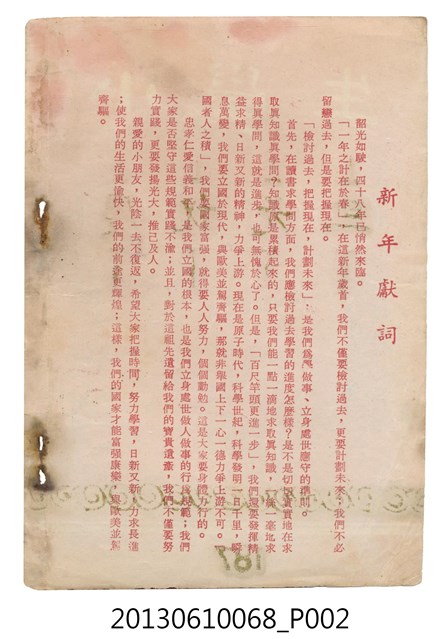 新年獻詞
韶光如駛，四十八年已悄然來臨。
「一年之計在於春」，在這新年歲首，我們不僅要檢討過去，更要計劃未來，我們不必
留戀過去，但是要把握現在。
「檢討過去，把握現在，計劃未來」，是我們為學做事、立身處世應守的準則。
首先，在讀書求學問方面，我們應檢討過去學習的進度怎麼樣？是不是切切實實地在求
取真知識真學問？知識原是累積起來的，只要我們能一點一滴地求取真知識，一絲一毫地求
得真學問，這就是進步，也可無愧於心了。但是，「百尺竿頭更進一步」，我們還要發揮精
益求精、日新又新的精神，力爭上游。現在是原子時代，科學世紀，科學發明一日千里，瞬
息萬變，我們要立國於現代，與歐美並駕齊驅，那就非舉國上下一心一德力爭上游不可。「
國者人之積」，我們要國家富強，就得要人人努力，個個勤勉。這是大家要身體力行的。
忠孝仁愛信義和平是我們立國的根本，也是我們立身處世做人做事的行為規範；我們
大家是否堅守這些規範實踐不渝；並且，對於這祖先遺留給我們的寶貴遺產，我們不僅要努
力實踐，更要發揚光大，推己及人。
親愛的小朋友，光陰一去不復返，希望大家把握時間，努力學習，日新又新，力求長進
；使我們的生活更愉快，我們的前途更輝煌；這樣，我們的國家才能富强康樂，與歐美並駕
齊驅。
187
20130610068_P002